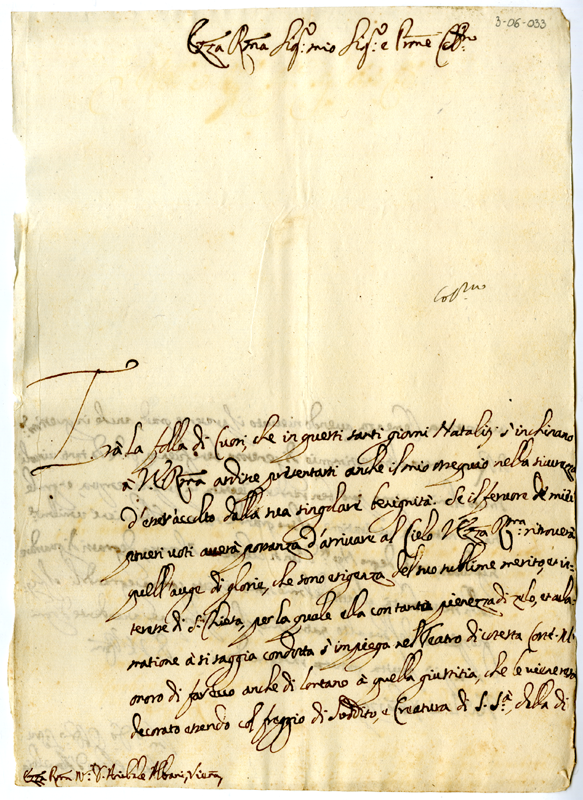 3-06-033
Ecc:za R:ma Sig:r mio Sig:r e P'rone
Trà la folla di Cuori, che in questi santi giorni Natalizj s'inchinano
à V. R:ma ardisce presentarsi anche il mio ossequio nella sicurezza
d'esser accolto dalla sua singolare benignità. Se il fervore de' miei
poveri voti averà possanza d'arrivare al Cielo V. Ecc:za R:ma ritroverà
quell'auge di glorie, che sono esigenza del suo sublime merito, et in=
teresse di S:ta Chiesa, per la quale ella con tanta pienezza di zelo, et
ratione à si saggia condotta s'impiega nel Teatro di cotesta Corte.
onoro di far eco anche di lontano à quella giustitia, che le viene resa
decorato essendo col freggio di Suddito, e Creatura di S. S:tà, della di
R:ma M:r Annibale Albani, Vienna